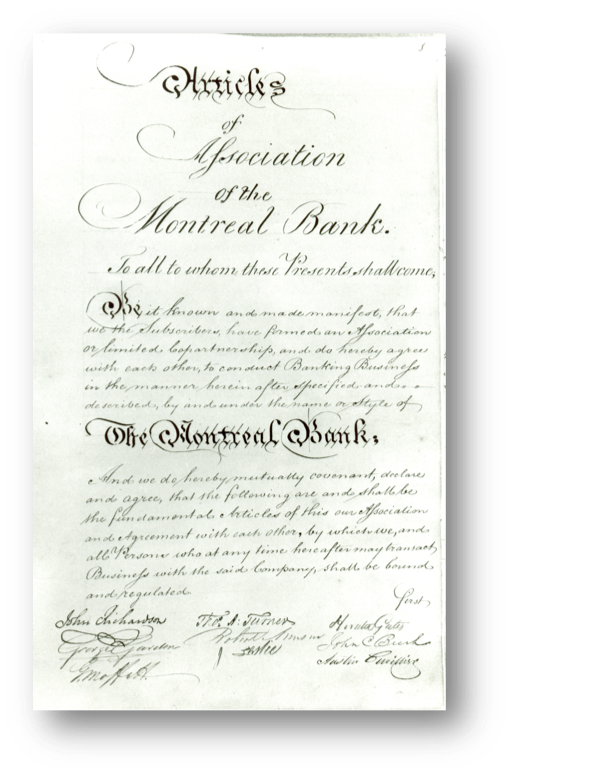 Articles
of
Association
of the
Montreal Bank.
To all to whom these Presents shall come,
Be it known and made manifest, that
we the Subscribers, have formed an Association
or limited Copartnership, and do hereby agree
with each other, to conduct Banking Business
in the manner herein after specified and
described, by and under the name or Style of
The Montreal Bank;
And we do hereby mutually covenant, declare
and agree, that the following are and shall be
the fundamental Articles of this our Association
and Agreement with each other, by which we, and
all Persons who at any time hereafter may transact
Business with the said Company, shall be bound
and regulated.
first
John Richardson Thos. A. Turner Horatio Gates
George Garden Robert Leslie John C Bush
G. Moffatt Austin Cuvillier